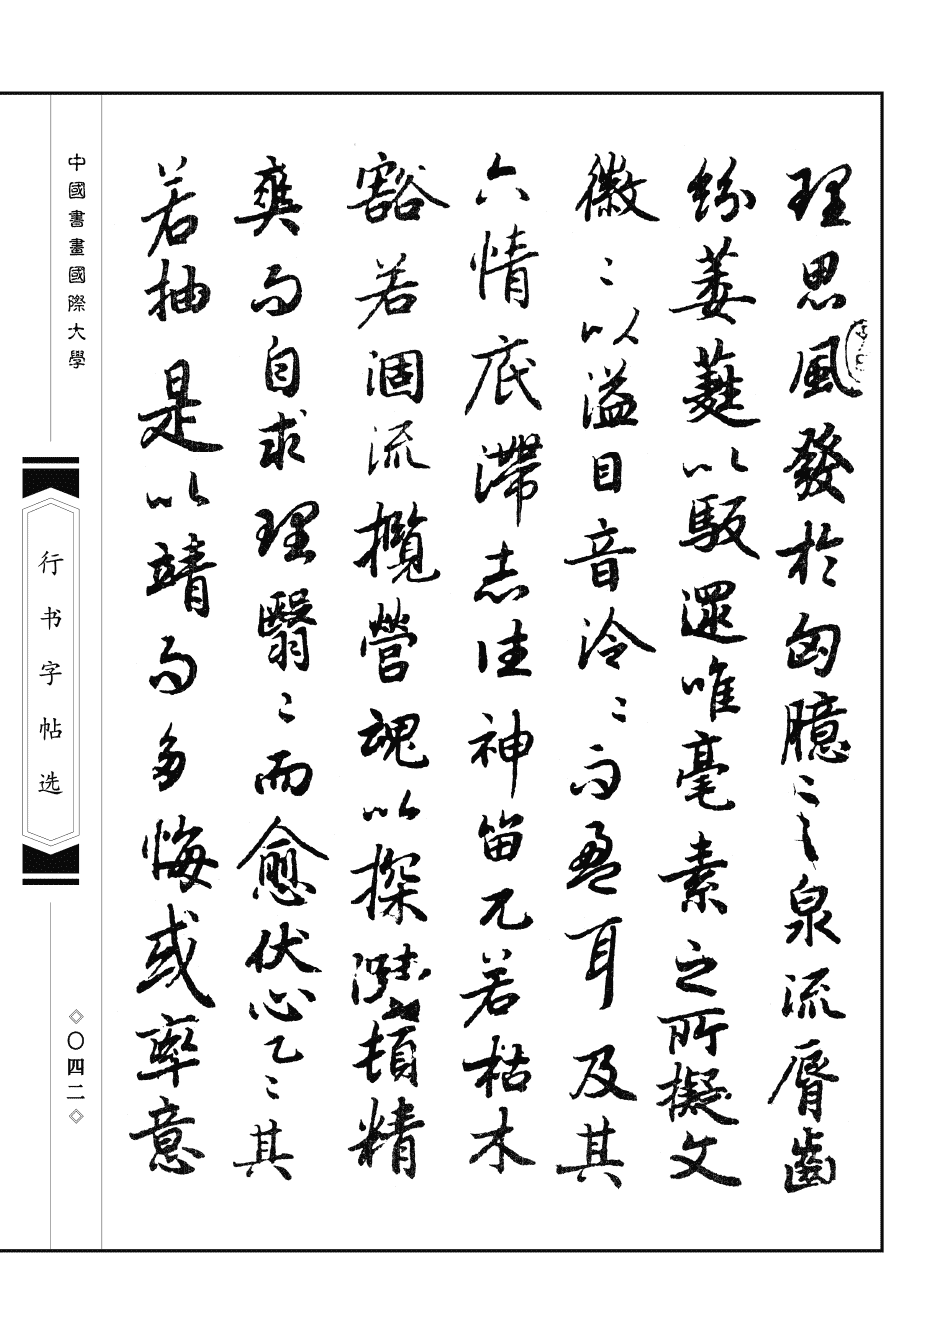 理思風發於匈臆言泉流脣齒
紛葳蕤以馺遝唯毫素之所擬文
徽〻以溢目音泠〻而盈耳及其
六情底滯志往神留兀若枯木
豁若涸流攬營魂以探賾頓精
爽而自求理翳〻而愈伏心乙〻其
若抽是以或竭情而多悔或率意
中國書畫國際大學
行书字帖选
〇四二